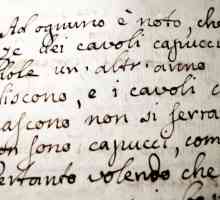 Ad ognuno è noto, che
ze dei cavoli capucci
uole un altr'anno
discono, e i cavoli c
nascono non si serra
on sono capucci, com
ertanto volendo che